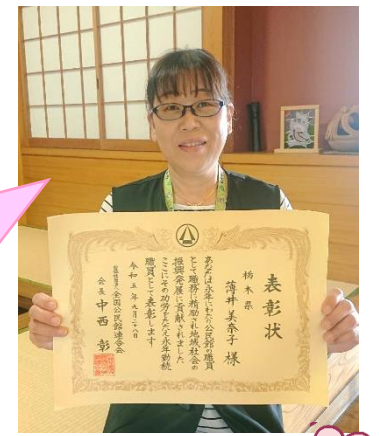 表彰状
栃木県
薄井美奈子様
あなたは永年にわたり公民館の職員
として職務に精励され地域社会の
振興発展に貢献されました
ここにその功労をたたえ永年勤続
職員として表彰します
令和五年九月二十八日
公益社団法人全国公民館連合会
会長 中西彰